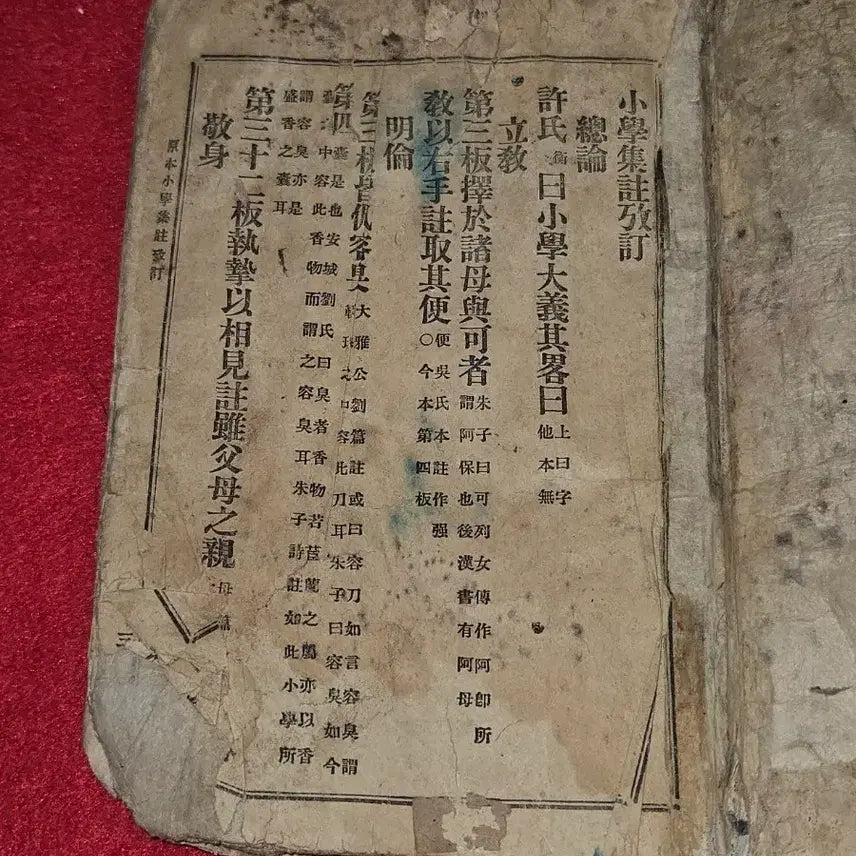 小學集註攷訂
總論
許氏衡曰小學大義其畧曰上曰字他本無
立敎
第三板擇於諸母與可者朱子曰可列女傳作阿卽所謂阿保也後漢書有阿母
敎以右手註取其便便吳氏本註作强○今本第四板
明倫
第三板皆佩容臭大雅公劉篇註或曰容刀如言容臭謂之中容此刀耳朱子曰容臭如今
囊是也安城劉氏曰臭者香物若茝蘭之屬亦以香中容此香物而謂之容臭耳朱子詩註如此小學所
謂容臭亦是盛香之囊耳
第三十二板執摯以相見註雖父母之親母
敬身
原本小學集註攷訂
三